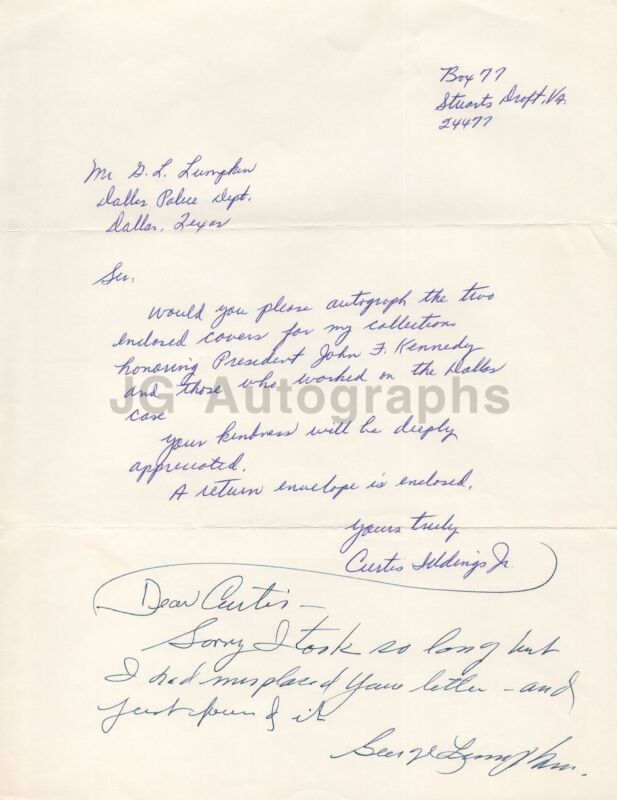 Box 77
Stuarts Draft, Va.
24477
Mr G. L. Lumpkin
Dallas Police Dept.
Dallas, Texas
Sir.
Would you please autograph the two
enclosed covers for my collections
honoring President John F. Kennedy
and those who worked on the Dallas
case
JG Autographs
Your kindness will be deeply
appreciated.
A return envelope is enclosed.
Yours truly
Curtis Iddings Jr.
Dear Curtis —
Sorry I took so long but
I had misplaced your letter – and
just found it
George Lumpkin.